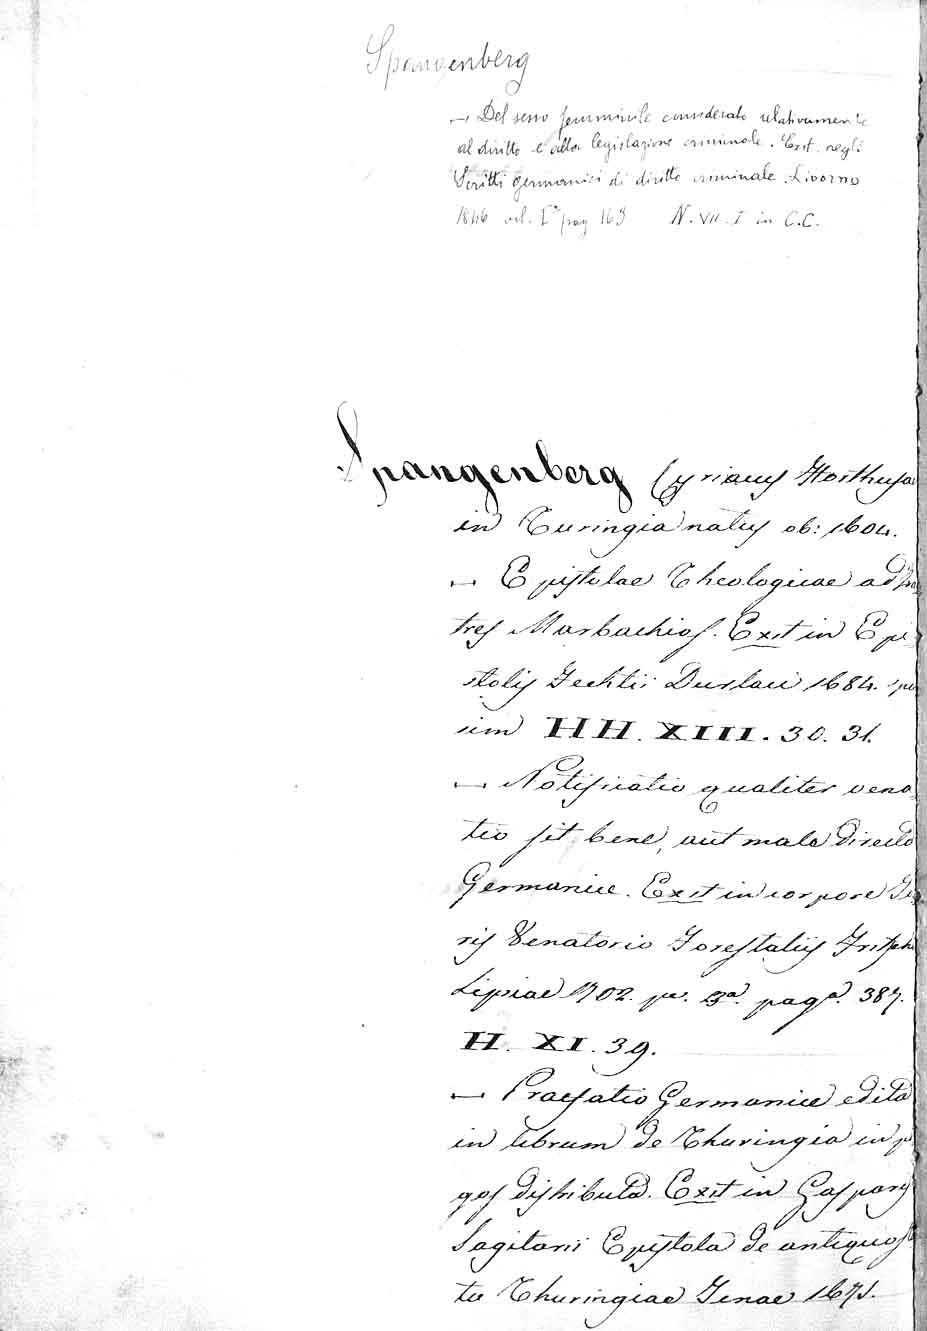 Spangenberg
— Del sesso femminile considerato relativamente
al diritto e alla legislazione criminale. Exst. negli
Scritti germanici di diritto criminale. Livorno
1846 vol. I° pag 163 N. VII. I in C.C.
Spangenberg Cyriacus Northusa
in Turingia natus ob: 1604.
— Epistolae Theologicae ad fra
tres Marbachios. Exst in Epi
stolis Fechtii Durlaci 1684.
sim HH. XIII. 30. 31.
— Notificatio qualiter vena
tio sit bene, aut male directa
Germanice. Exst in corpore Ju
ris Venatorio Forestalis Fritschi
Lipsiae 1702. pe. 3a. paga. 387.
H. XI. 39.
— Praefatio Germanice edita
in librum de Thuringia in p
gos distributa. Exst in Gasparis
Sagitarii Epistola de antiquo st
tu Thuringiae Jenae 1675.